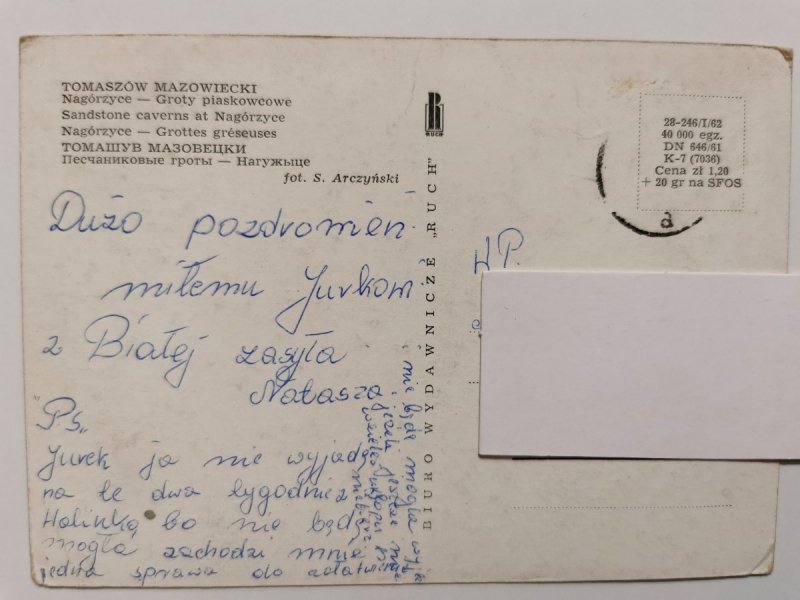 TOMASZÓW MAZOWIECKI
Nagórzyce — Groty piaskowcowe
Sandstone caverns at Nagórzyce
Nagórzyce — Grottes gréseuses
ТОМАШУВ МАЗОВЕЦКИ
Песчаниковые гроты — Нагужыце
fot. S. Arczyński
RUCH
28-246/I/62
40 000 egz.
DN 646/61
K-7 (7036)
Cena zł 1,20
+ 20 gr na SFOS
a
BIURO WYDAWNICZE „RUCH"
Dużo pozdrowień
miłemu Jurkowi
z Białej zasyła
Natasza
"Ps„
Jurek ja nie wyjadę
na te dwa tygodnie z
Halinką bo nie będę
mogła zachodzi mnie
jedna sprawa do załatwienia
i nie będę mogła
jeżeli jeszcze
W.P.